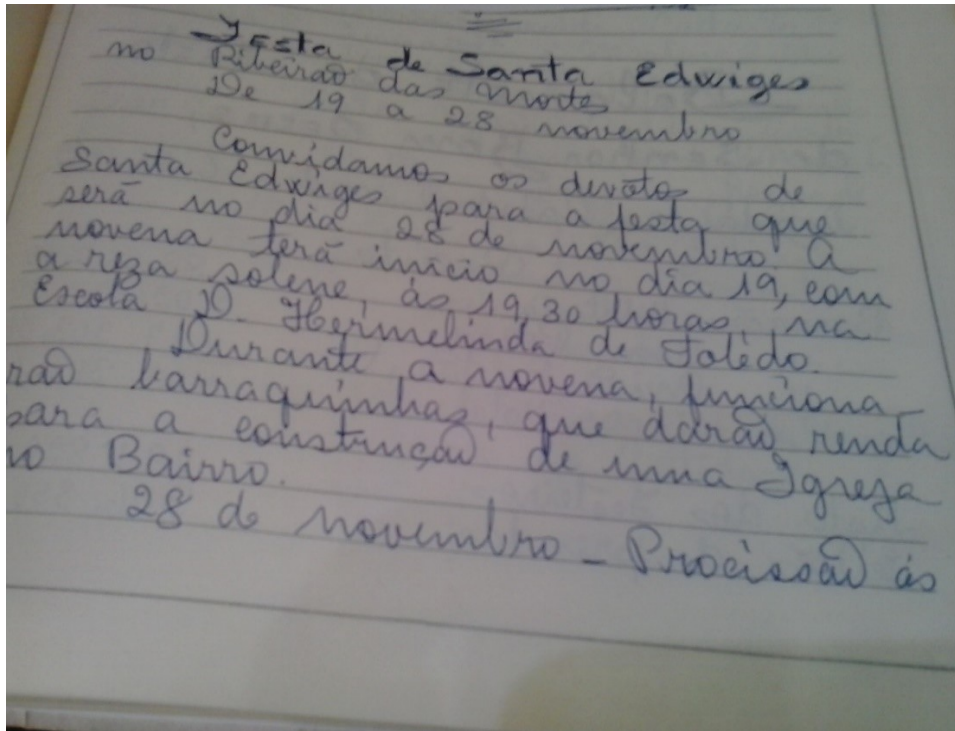 Festa de Santa Edwiges
no Ribeirão das Mortes
De 19 a 28 novembro
Convidamos os devotos de
Santa Edwiges para a festa que
será no dia 28 de novembro. A
novena terá início no dia 19, com
a reza solene, ás 19,30 horas, na
Escola D. Hermelinda de Toledo.
Durante a novena, funciona
rão barraquinhas, que darão renda
para a construção de uma Igreja
no Bairro.
28 de novembro - Procissão ás